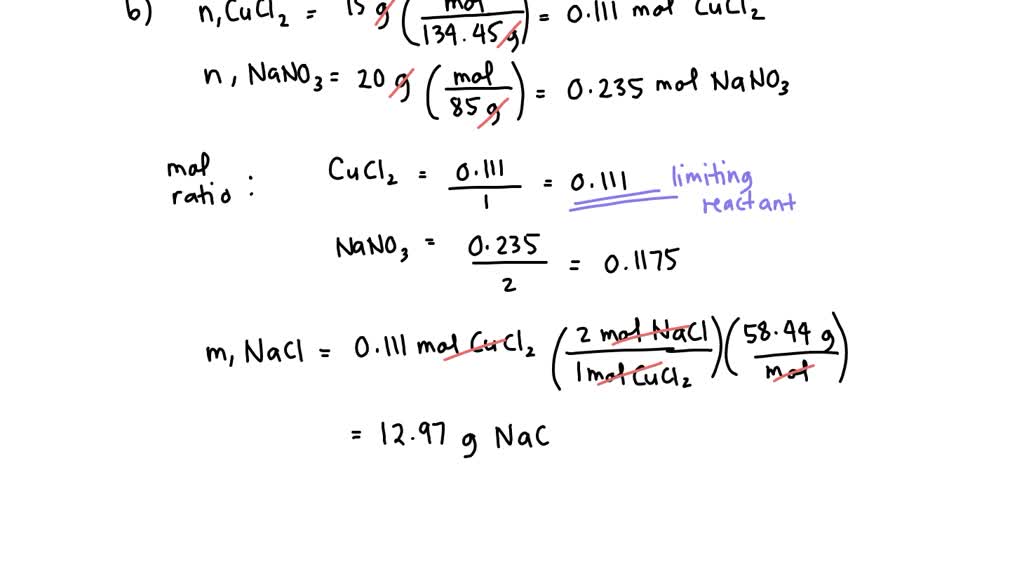 b) n, CuCl2 = 15 g (mol/134.45 g) = 0.111 mol CuCl2
n, NaNO3 = 20 g (mol/85 g) = 0.235 mol NaNO3
mol ratio : CuCl2 = 0.111/1 = 0.111 limiting reactant
NaNO3 = 0.235/2 = 0.1175
m, NaCl = 0.111 mol CuCl2 (2 mol NaCl/1 mol CuCl2)(58.44 g/mol)
= 12.97 g NaC